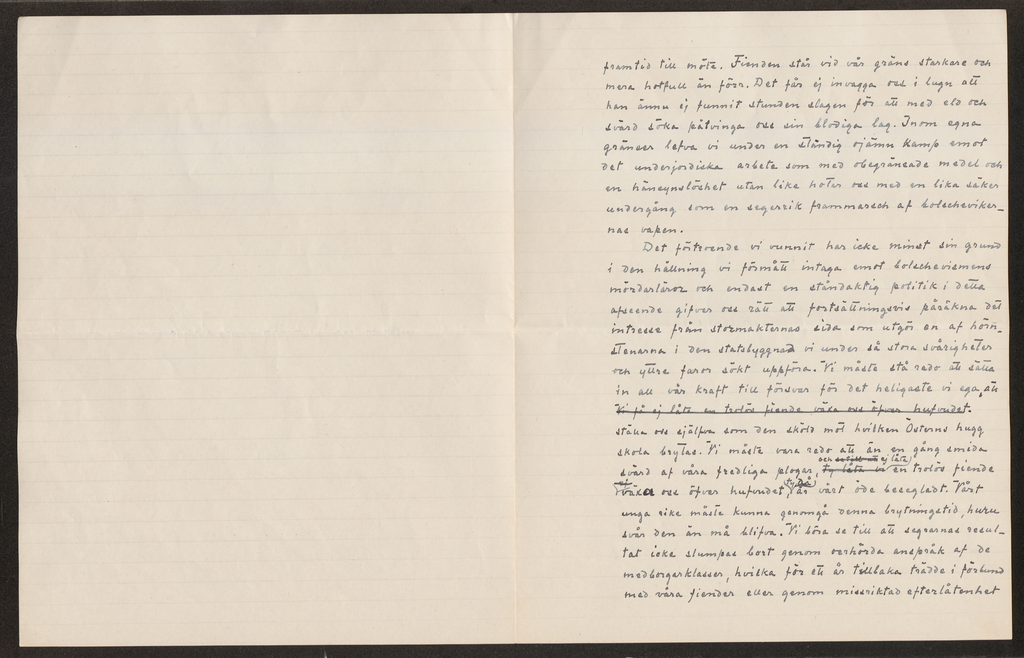 framtid till möte. Fienden står vid vår gräns starkare och
mera hotfull än förr. Det får ej invagga oss i lugn att
han ännu ej funnit stunden slagen för att med eld och
svärd söka påtvinga oss sin blodiga lag. Inom egna
gränser lefva vi under en ständig ojämn kamp emot
det underjordiska arbete som med obegränsade medel och
en hänsynslöshet utan like hotar oss med en lika säker
undergång som en segerrik frammarsch af bolscheviker-
nas vapen.
Det förtroende vi vunnit har icke minst sin grund
i den hållning vi förmått intaga emot bolschevismens
mördarläror och endast en ståndaktig politik i detta
afseende gifver oss rätt att fortsättningsvis påräkna det
intresse från stormakternas sida som utgör en af hörn-
stenarna i den statsbyggnad vi under så stora svårigheter
och yttre faror sökt uppföra. Vi måste stå redo att sätta
in all vår kraft till försvar för det heligaste vi ega, att
Vi få ej låta en trolös fiende växa oss öfver hufvudet.
ställa oss själfva som den sköld mot hvilken Österns hugg
skola brytas. Vi måste vara redo att än en gång smida
och ej låta
svärd af våra fredliga plogar, ty låta vi en trolös fiende
ty då
växa oss öfver hufvudet, är vårt öde beseglat. Vårt
unga rike måste kunna genomgå denna brytningstid, huru
svår den än må blifva. Vi böra se till att segrarnas resul-
tat icke slumpas bort genom oerhörda anspråk af de
medborgarklasser, hvilka för ett år tillbaka trädde i förbund
med våra fiender eller genom missriktad efterlåtenhet